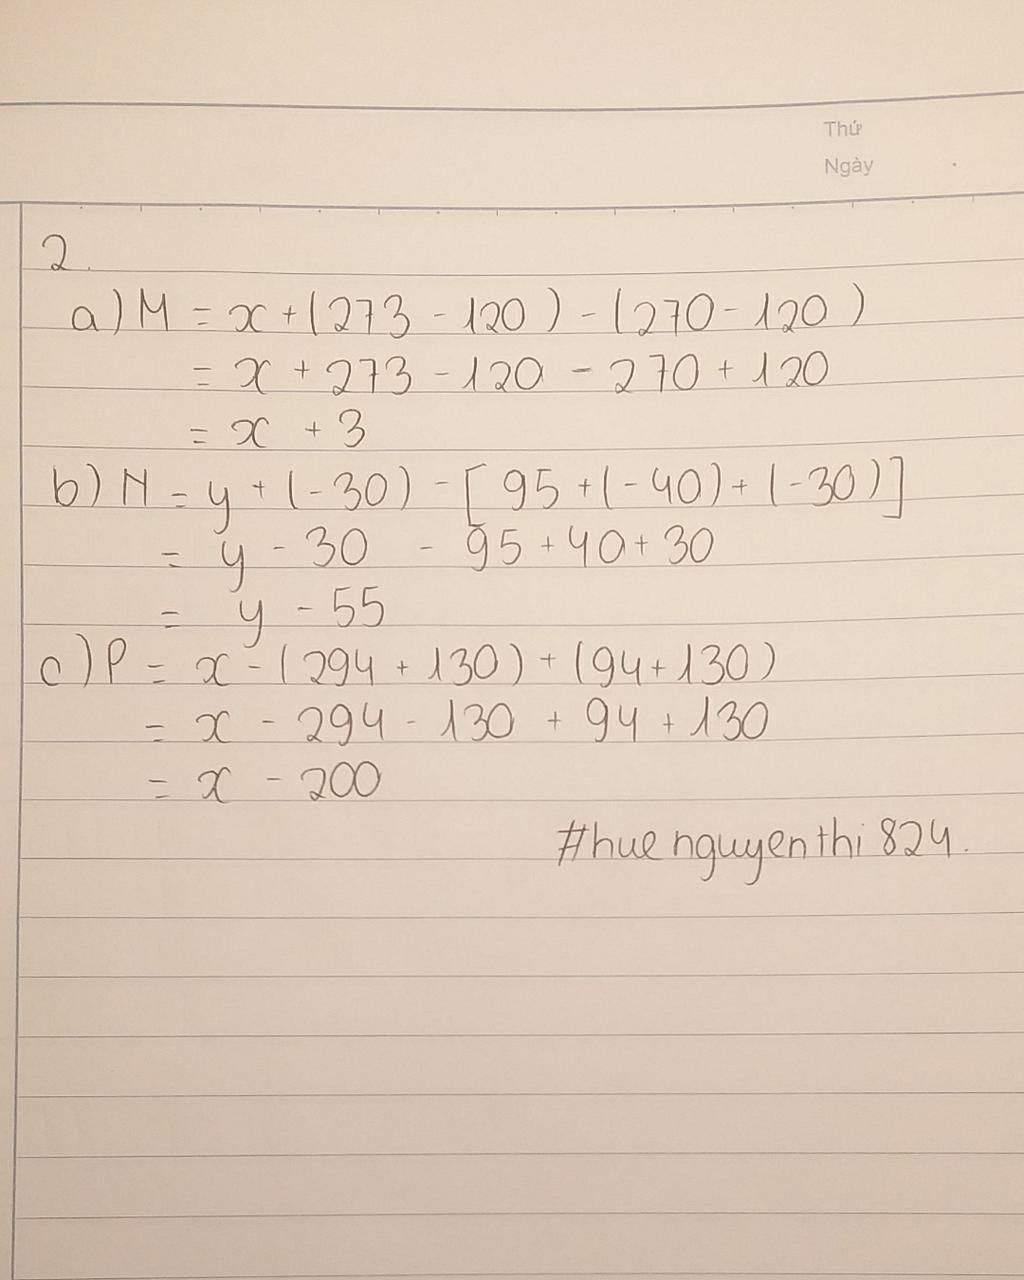 Thứ
Ngày
2.
a) M = x + (273 - 120) - (270 - 120)
= x + 273 - 120 - 270 + 120
= x + 3
b) N = y + (-30) - [95 + (-40) + (-30)]
= y - 30 - 95 + 40 + 30
= y - 55
c) P = x - (294 + 130) + (94 + 130)
= x - 294 - 130 + 94 + 130
= x - 200
#hue nguyen thi 824.